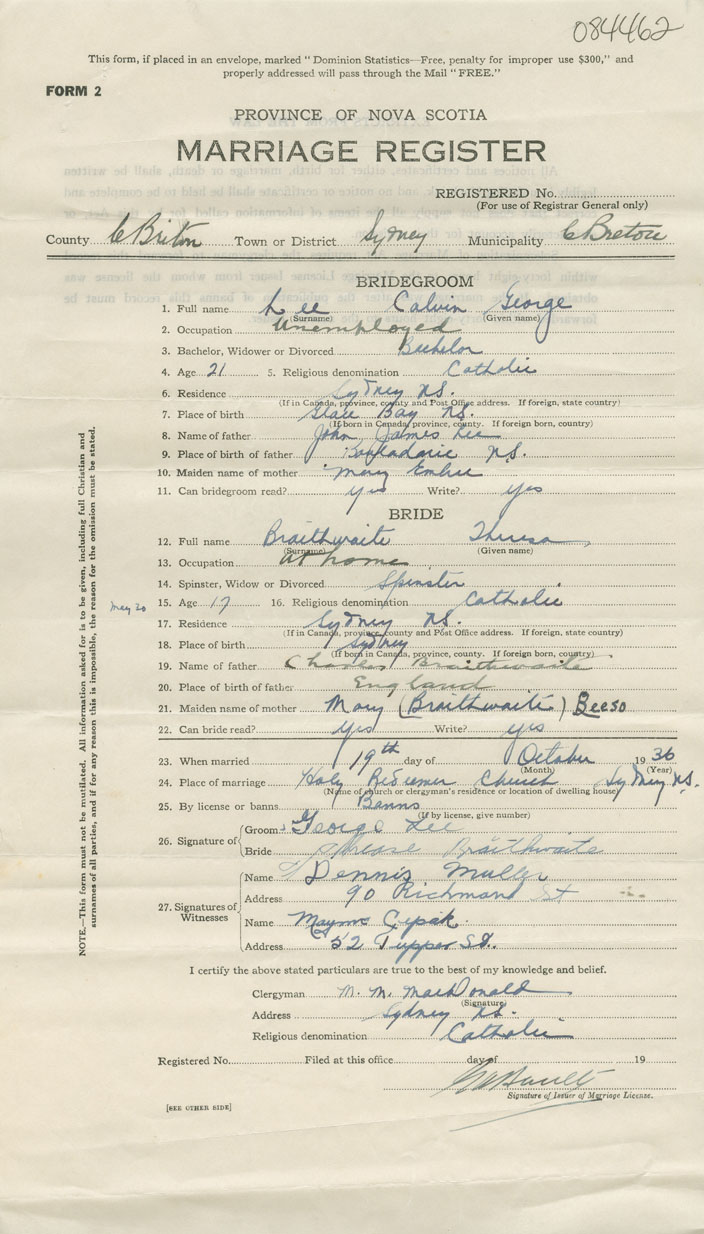 084462
This form, if placed in an envelope, marked "Dominion Statistics—Free, penalty for improper use $300," and
properly addressed will pass through the Mail "FREE."
FORM 2
PROVINCE OF NOVA SCOTIA
MARRIAGE REGISTER
REGISTERED No.
(For use of Registrar General only)
County C Briton Town or District Sydney Municipality C Breton
BRIDEGROOM
1. Full name Lee Calvin George
(Surname) (Given name)
2. Occupation Unemployed
3. Bachelor, Widower or Divorced Bachelor
4. Age 21 5. Religious denomination Catholic
6. Residence Sydney N.S.
(If in Canada, province, county and Post Office address. If foreign, state country)
7. Place of birth Glace Bay N.S.
(If born in Canada, province, county. If foreign born, country)
8. Name of father John James Lee
9. Place of birth of father N.S.
10. Maiden name of mother Mary
11. Can bridegroom read? yes Write? yes
BRIDE
12. Full name Braithwaite Theresa
(Surname) (Given name)
13. Occupation at home
14. Spinster, Widow or Divorced Spinster
May 20
15. Age 17 16. Religious denomination Catholic
17. Residence Sydney N.S.
(If in Canada, province, county and Post Office address. If foreign, state country)
18. Place of birth Sydney
(If born in Canada, province, county. If foreign born, country)
19. Name of father Charles Braithwaite
20. Place of birth of father England
21. Maiden name of mother Mary (Braithwaite) Beeso
22. Can bride read? yes Write? yes
23. When married 19th day of October 1936
(Month) (Year)
24. Place of marriage Holy Redeemer Church Sydney N.S.
(Name of church or clergyman's residence or location of dwelling house)
25. By license or banns Banns
(If by license, give number)
26. Signature of Groom George Lee
Bride Braithwaite
27. Signatures of Witnesses
Name Dennis Muller
Address 90 Richmond St
Name Mayme Cipak
Address 52 Tupper St.
I certify the above stated particulars are true to the best of my knowledge and belief.
Clergyman M. M. MacDonald
(Signature)
Address Sydney N.S.
Religious denomination Catholic
Registered No. Filed at this office day of 19
Signature of Issuer of Marriage License.
[SEE OTHER SIDE]
NOTE.—This form must not be mutilated. All information asked for is to be given, including full Christian and
surnames of all parties, and if for any reason this is impossible, the reason for the omission must be stated.